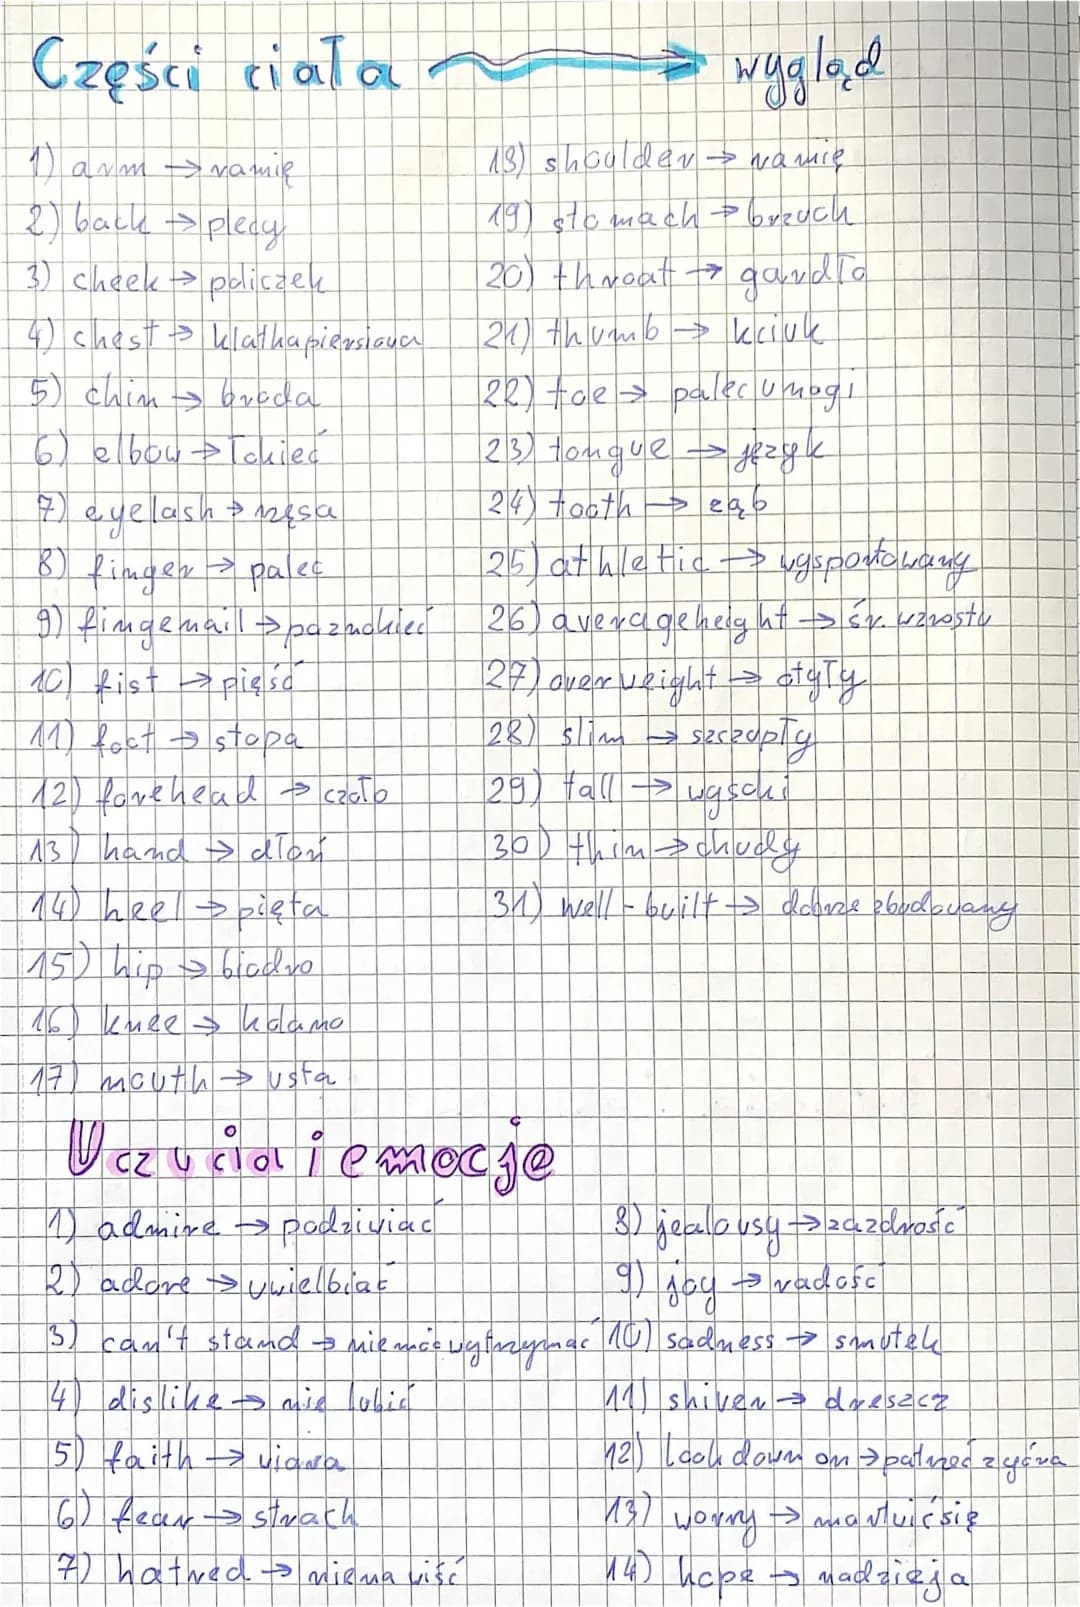 Części ciała → wygląd
1) arm → ramię
2) back → plecy
3) cheek → policzek
4) chest → klatka piersiowa
5) chin → broda
6) elbow → łokieć
7) eyelash → rzęsa
8) finger → palec
9) fingernail → paznokieć
10) fist → pięść
11) foot → stopa
12) forehead → czoło
13) hand → dłoń
14) heel → pięta
15) hip → biodro
16) knee → kolano
17) mouth → usta
18) shoulder → ramię
19) stomach → brzuch
20) throat → gardło
21) thumb → kciuk
22) toe → palec u nogi
23) tongue → język
24) tooth → ząb
25) athletic → wysportowany
26) average height → śr. wzrostu
27) overweight → otyły
28) slim → szczupły
29) tall → wysoki
30) thin → chudy
31) well-built → dobrze zbudowany
Uczucia i emocje
1) admire → podziwiać
2) adore → uwielbiać
3) can't stand → nie móc wytrzymać
4) dislike → nie lubić
5) faith → wiara
6) fear → strach
7) hatred → nienawiść
8) jealousy → zazdrość
9) joy → radość
10) sadness → smutek
11) shiver → dreszcz
12) look down on → patrzeć z góra
13) worry → martwić się
14) hope → nadzieja